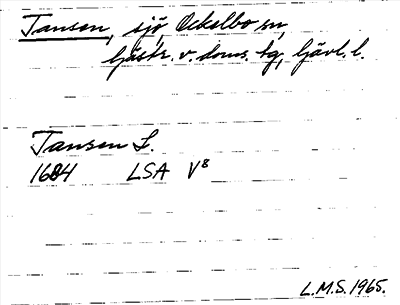 Tansen, sjö, Ockelbo sn,
Gästr. v. doms. tg, Gävl. l.
Tansen L.
1684 LSA V8
L.M.S. 1965.